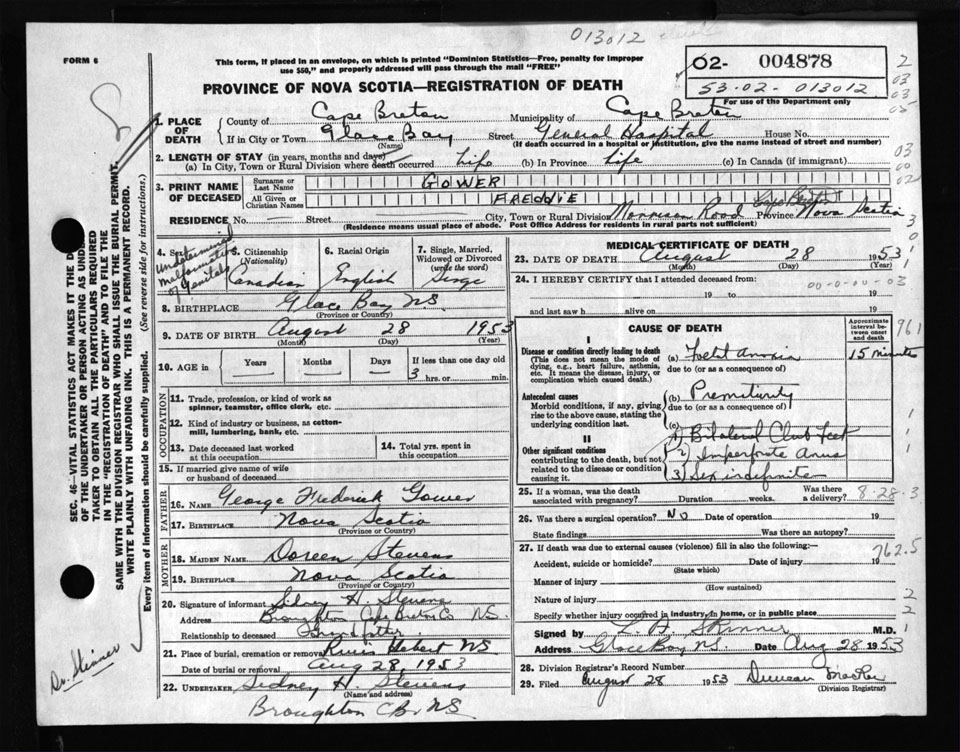 013012
FORM 6
This form, if placed in an envelope, on which is printed "Dominion Statistics—Free, penalty for improper
use $50," and properly addressed will pass through the mail "FREE"
02- 004878
53-02-013012
For use of the Department only
PROVINCE OF NOVA SCOTIA—REGISTRATION OF DEATH
1. PLACE OF DEATH
County of Cape Breton Municipality of Cape Breton
If in City or Town Glace Bay Street General Hospital House No.
(Name) (If death occurred in a hospital or institution, give its name instead of street and number)
2. LENGTH OF STAY (in years, months and days)
(a) In City, Town or Rural Division where death occurred Life (b) In Province Life (c) In Canada (if immigrant)
3. PRINT NAME OF DECEASED
Surname or Last Name GOWER
All Given or Christian Names FREDDIE
RESIDENCE No. — Street — City, Town or Rural Division Morrison Road Cape Breton Province Nova Scotia
(Residence means usual place of abode. Post Office Address for residents in rural parts not sufficient)
4. Sex Undetermined Malformation of Genitals
5. Citizenship (Nationality) Canadian
6. Racial Origin English
7. Single, Married, Widowed or Divorced (write the word) Singe
8. BIRTHPLACE Glace Bay NS
(Province or Country)
9. DATE OF BIRTH August 28 1953
(Month) (Day) (Year)
10. AGE in Years — Months — Days — If less than one day old 3 hrs. or min.
OCCUPATION
11. Trade, profession, or kind of work as spinner, teamster, office clerk, etc.
12. Kind of industry or business, as cotton-mill, lumbering, bank, etc.
13. Date deceased last worked at this occupation
14. Total yrs. spent in this occupation
15. If married give name of wife or husband of deceased
FATHER
16. NAME George Frederick Gower
17. BIRTHPLACE Nova Scotia
(Province or Country)
MOTHER
18. MAIDEN NAME Doreen Stevens
19. BIRTHPLACE Nova Scotia
(Province or Country)
20. Signature of informant Sidney H. Stevens
Address Broughton Cape Breton Co NS.
Relationship to deceased
21. Place of burial, cremation or removal Hebert NS
Date of burial or removal Aug 28, 1953
22. UNDERTAKER Sidney H. Stevens
(Name and address)
Broughton C.B. NS
MEDICAL CERTIFICATE OF DEATH
23. DATE OF DEATH August 28 1953
(Month) (Day) (Year)
24. I HEREBY CERTIFY that I attended deceased from:
19 to 19
00-0-00-03
and last saw h alive on 19
CAUSE OF DEATH
Approximate interval between onset and death
I
Disease or condition directly leading to death
(This does not mean the mode of dying, e.g., heart failure, asthenia, etc. It means the disease, injury, or complication which caused death.)
(a) Foetal anoxia 15 minutes
due to (or as a consequence of)
Antecedent causes
Morbid conditions, if any, giving rise to the above cause, stating the underlying condition last.
(b) Premiturity
due to (or as a consequence of)
(c)
II
Other significant conditions
contributing to the death, but not related to the disease or condition causing it.
1) Bilateral Club Feet
2) Imperforate Anus
3) Sex indefinite
961
25. If a woman, was the death associated with pregnancy? Duration weeks. Was there a delivery? 8-28-3
26. Was there a surgical operation? No Date of operation 19
State findings Was there an autopsy?
27. If death was due to external causes (violence) fill in also the following:—
762.5
Accident, suicide or homicide? Date of injury 19
(State which)
Manner of injury
(How sustained)
Nature of injury
Specify whether injury occurred in industry, in home, or in public place
Signed by Skinner M.D.
Address Glace Bay NS. Date Aug 28 1953
28. Division Registrar's Record Number
29. Filed August 28 1953 Duncan
(Division Registrar)
SEC. 46—VITAL STATISTICS ACT MAKES IT THE
OF THE UNDERTAKER OR PERSON ACTING AS
TAKER TO OBTAIN ALL THE PARTICULARS REQUIRED
IN THE "REGISTRATION OF DEATH" AND TO FILE THE
SAME WITH THE DIVISION REGISTRAR WHO SHALL ISSUE THE BURIAL PERMIT.
WRITE PLAINLY WITH UNFADING INK. THIS IS A PERMANENT RECORD.
Every item of information should be carefully supplied. (See reverse side for instructions.)
Dr. Skinner